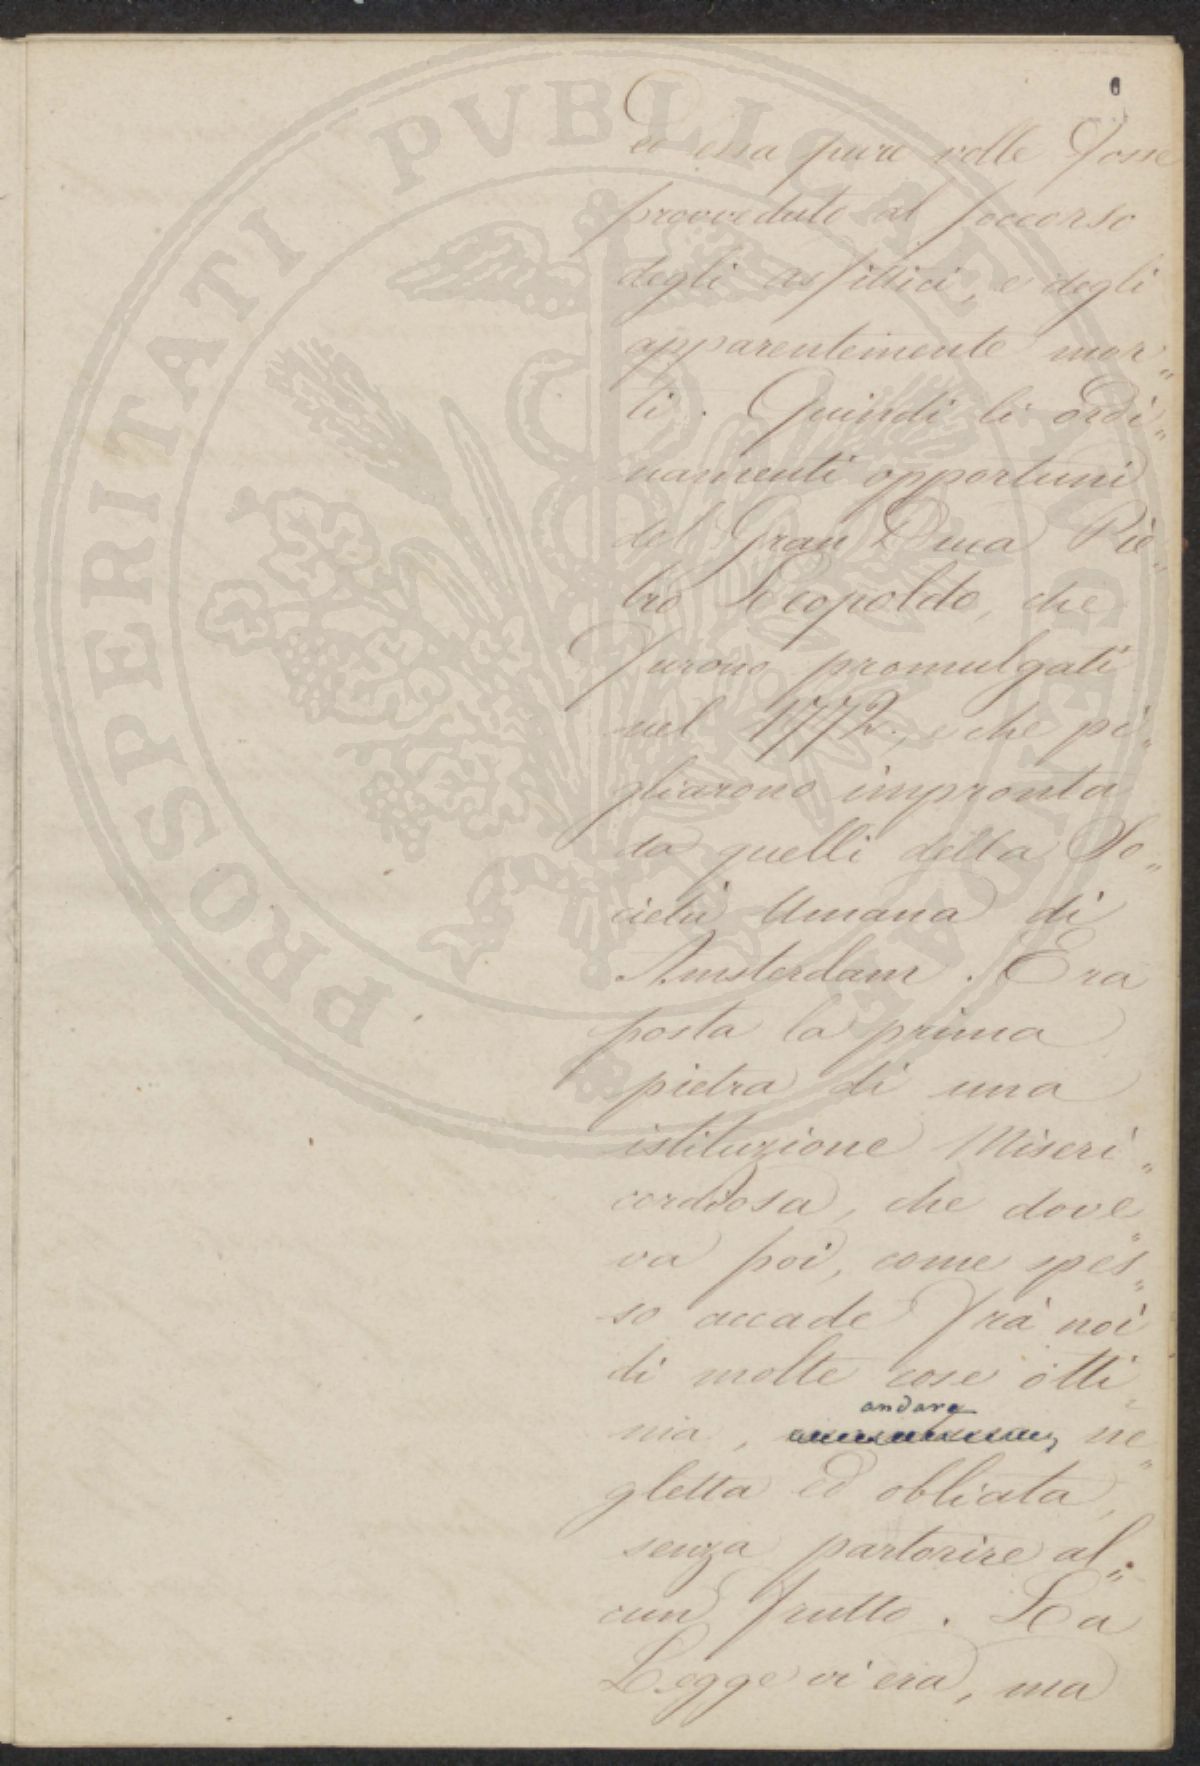 PROSPERITATI PUBLICAE AUGENDAE
ed essa pure volle fosse
provveduto al soccorso
degli asfittici, e degli
apparentemente mor„
ti. Quindi li ordi„
namenti opportuni
del Gran Duca Pie„
tro Leopoldo, che
furono promulgati
nel 1772., e che pi„
gliarono impronta
da quelli della So„
cietà Umana di
Amsterdam. Era
posta la prima
pietra di una
istituzione Miseri„
cordiosa, che dove„
va poi, come spes„
so accade frà noi
di molte cose otti„
andare
ma, ne„
gletta ed obliata,
senza partorire al„
cun frutto. La
Legge vi era, ma